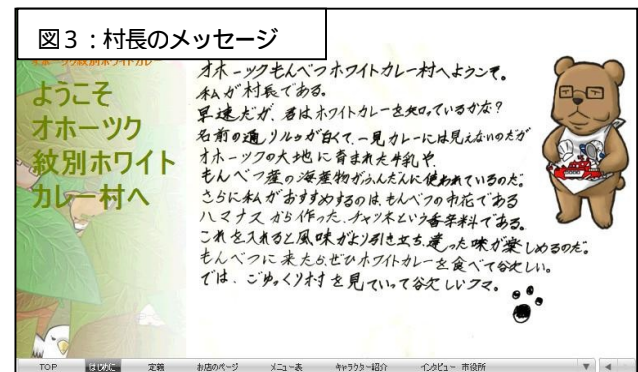 図３：村長のメッセージ
オホーツク紋別ホワイトカレー
ようこそ
オホーツク
紋別ホワイト
カレー村へ
オホーツクもんべつホワイトカレー村へようこそ。
私が村長である。
早速だが、君はホワイトカレーを知っているかな？
名前の通りルゥが白くて、一見カレーには見えないのだが
オホーツクの大地に育まれた牛乳や、
もんべつ産の海産物がふんだんに使われているのだ。
さらに私がおすすめするのは、もんべつの市花である
ハマナスから作った、チャツネという香辛料である。
これを入れると風味がより引き立ち、違った味が楽しめるのだ。
もんべつに来たらぜひホワイトカレーを食べて欲しい。
では、ごゆっくり村を見ていって欲しいクマ。
TOP はじめに 定義 お店のページ メニュー表 キャラクター紹介 インタビュー 市役所